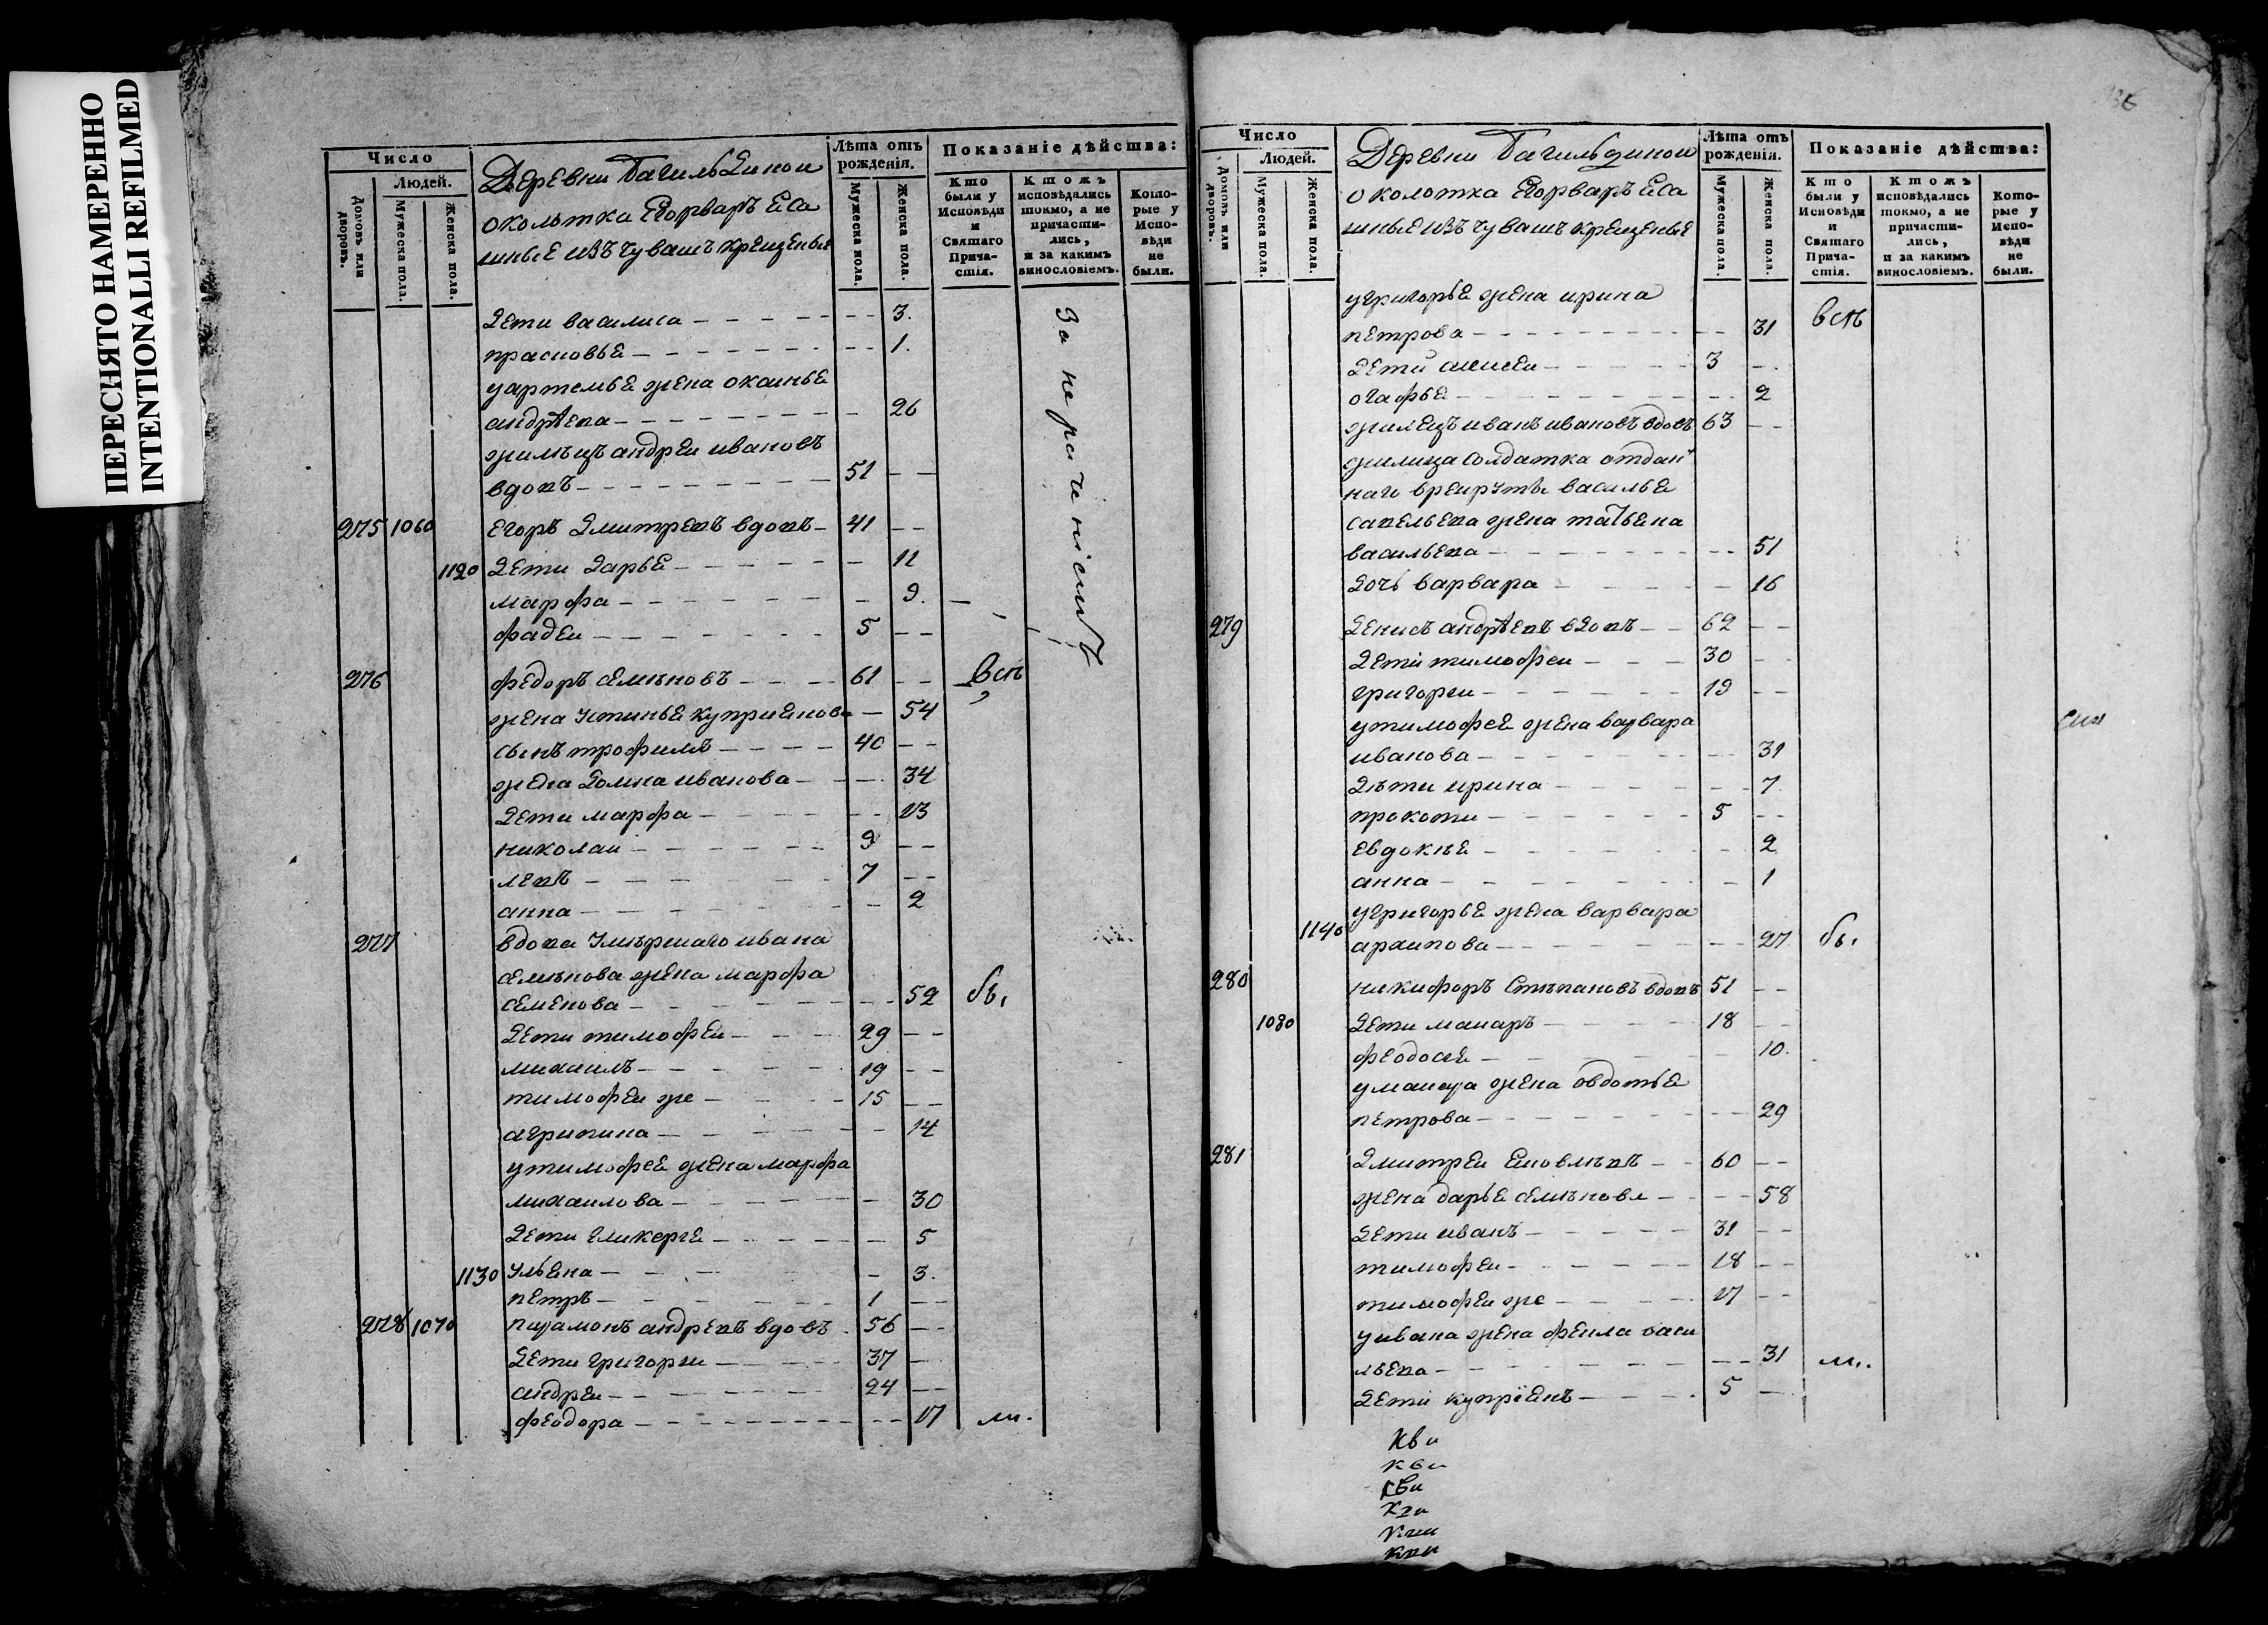 ПЕРЕСНЯТО НАМЕРЕННО
INTENTIONALLI REFILMED
Число
Людей.
Домовъ или дворовъ.
Мужеска пола.
Женска пола.
Деревни Багильдинои
околотка
из чувашъ крещеные
Лѣта отъ рожденія.
Мужеска пола.
Женска пола.
Показаніе дѣйства:
Кто были у Исповѣди и Святаго Причастія.
Ктожъ исповѣдались токмо, а не причастились, и за какимъ винословіемъ.
Которые у Исповѣди не были.
За нераченіемъ
Дети василиса 3.
прасковья 1.
уартемья жена оксинья
андрѣева 26
андреи ивановъ
вдовъ 51
275 1060 Егоръ Дмитревъ вдовъ 41
1120 Дети Дарья 11
марфа 9.
фадеи 5
276 федоръ семеновъ 61 всѣ
жена Устинья куприянова 54
сынъ трофимъ 40
жена Домна иванова 34
Дети марфа 13
николаи 9
левъ 7
анна 2
277 вдова умершаго ивана
семенова жена марфа
семенова 52
Дети тимофеи 29
михаилъ 19
тимофеи же 15
агрипина 14
утимофея жена марфа
михаилова 30
Дети гликерия 5
1130 Ульяна 3.
петръ 1
278 1070 парамонъ андревъ вдовъ 56
Дети григореи 37
андреи 24
феодора 17
Число
Людей.
Домовъ или дворовъ.
Мужеска пола.
Женска пола.
Деревни Багильдинои
околотка
изъ чувашъ крещеные
Лѣта отъ рожденія.
Мужеска пола.
Женска пола.
Показаніе дѣйства:
Кто были у Исповѣди и Святаго Причастія.
Ктожъ исповѣдались токмо, а не причастились, и за какимъ винословіемъ.
Которые у Исповѣди не были.
угригорья жена ирина
петрова 31 всѣ
Дети 3
огафья 2
иванъ ивановъ вдовъ 63
солдатка отдан
наго василья
савельева жена татьена
васильева 51
Дочь варвара 16
279 Денисъ андрѣевъ вдовъ 62
Дети тимофеи 30
григореи 19
утимофея жена варвара
иванова 31
Дѣти ирина 7
прокопи 5
евдокия 2
анна 1
угригорья жена варвара
1140 архипова 27
280 никифоръ Степановъ вдовъ 51
1080 Дети макаръ 18
феодосья 10.
умакара жена овдотья
петрова 29
281 Дмитреи 60
жена дарья семенова 58
Дети иванъ 31
тимофеи 18
тимофеи же 17
уивана жена фекла васи
льева 31
Дети купріянъ 5